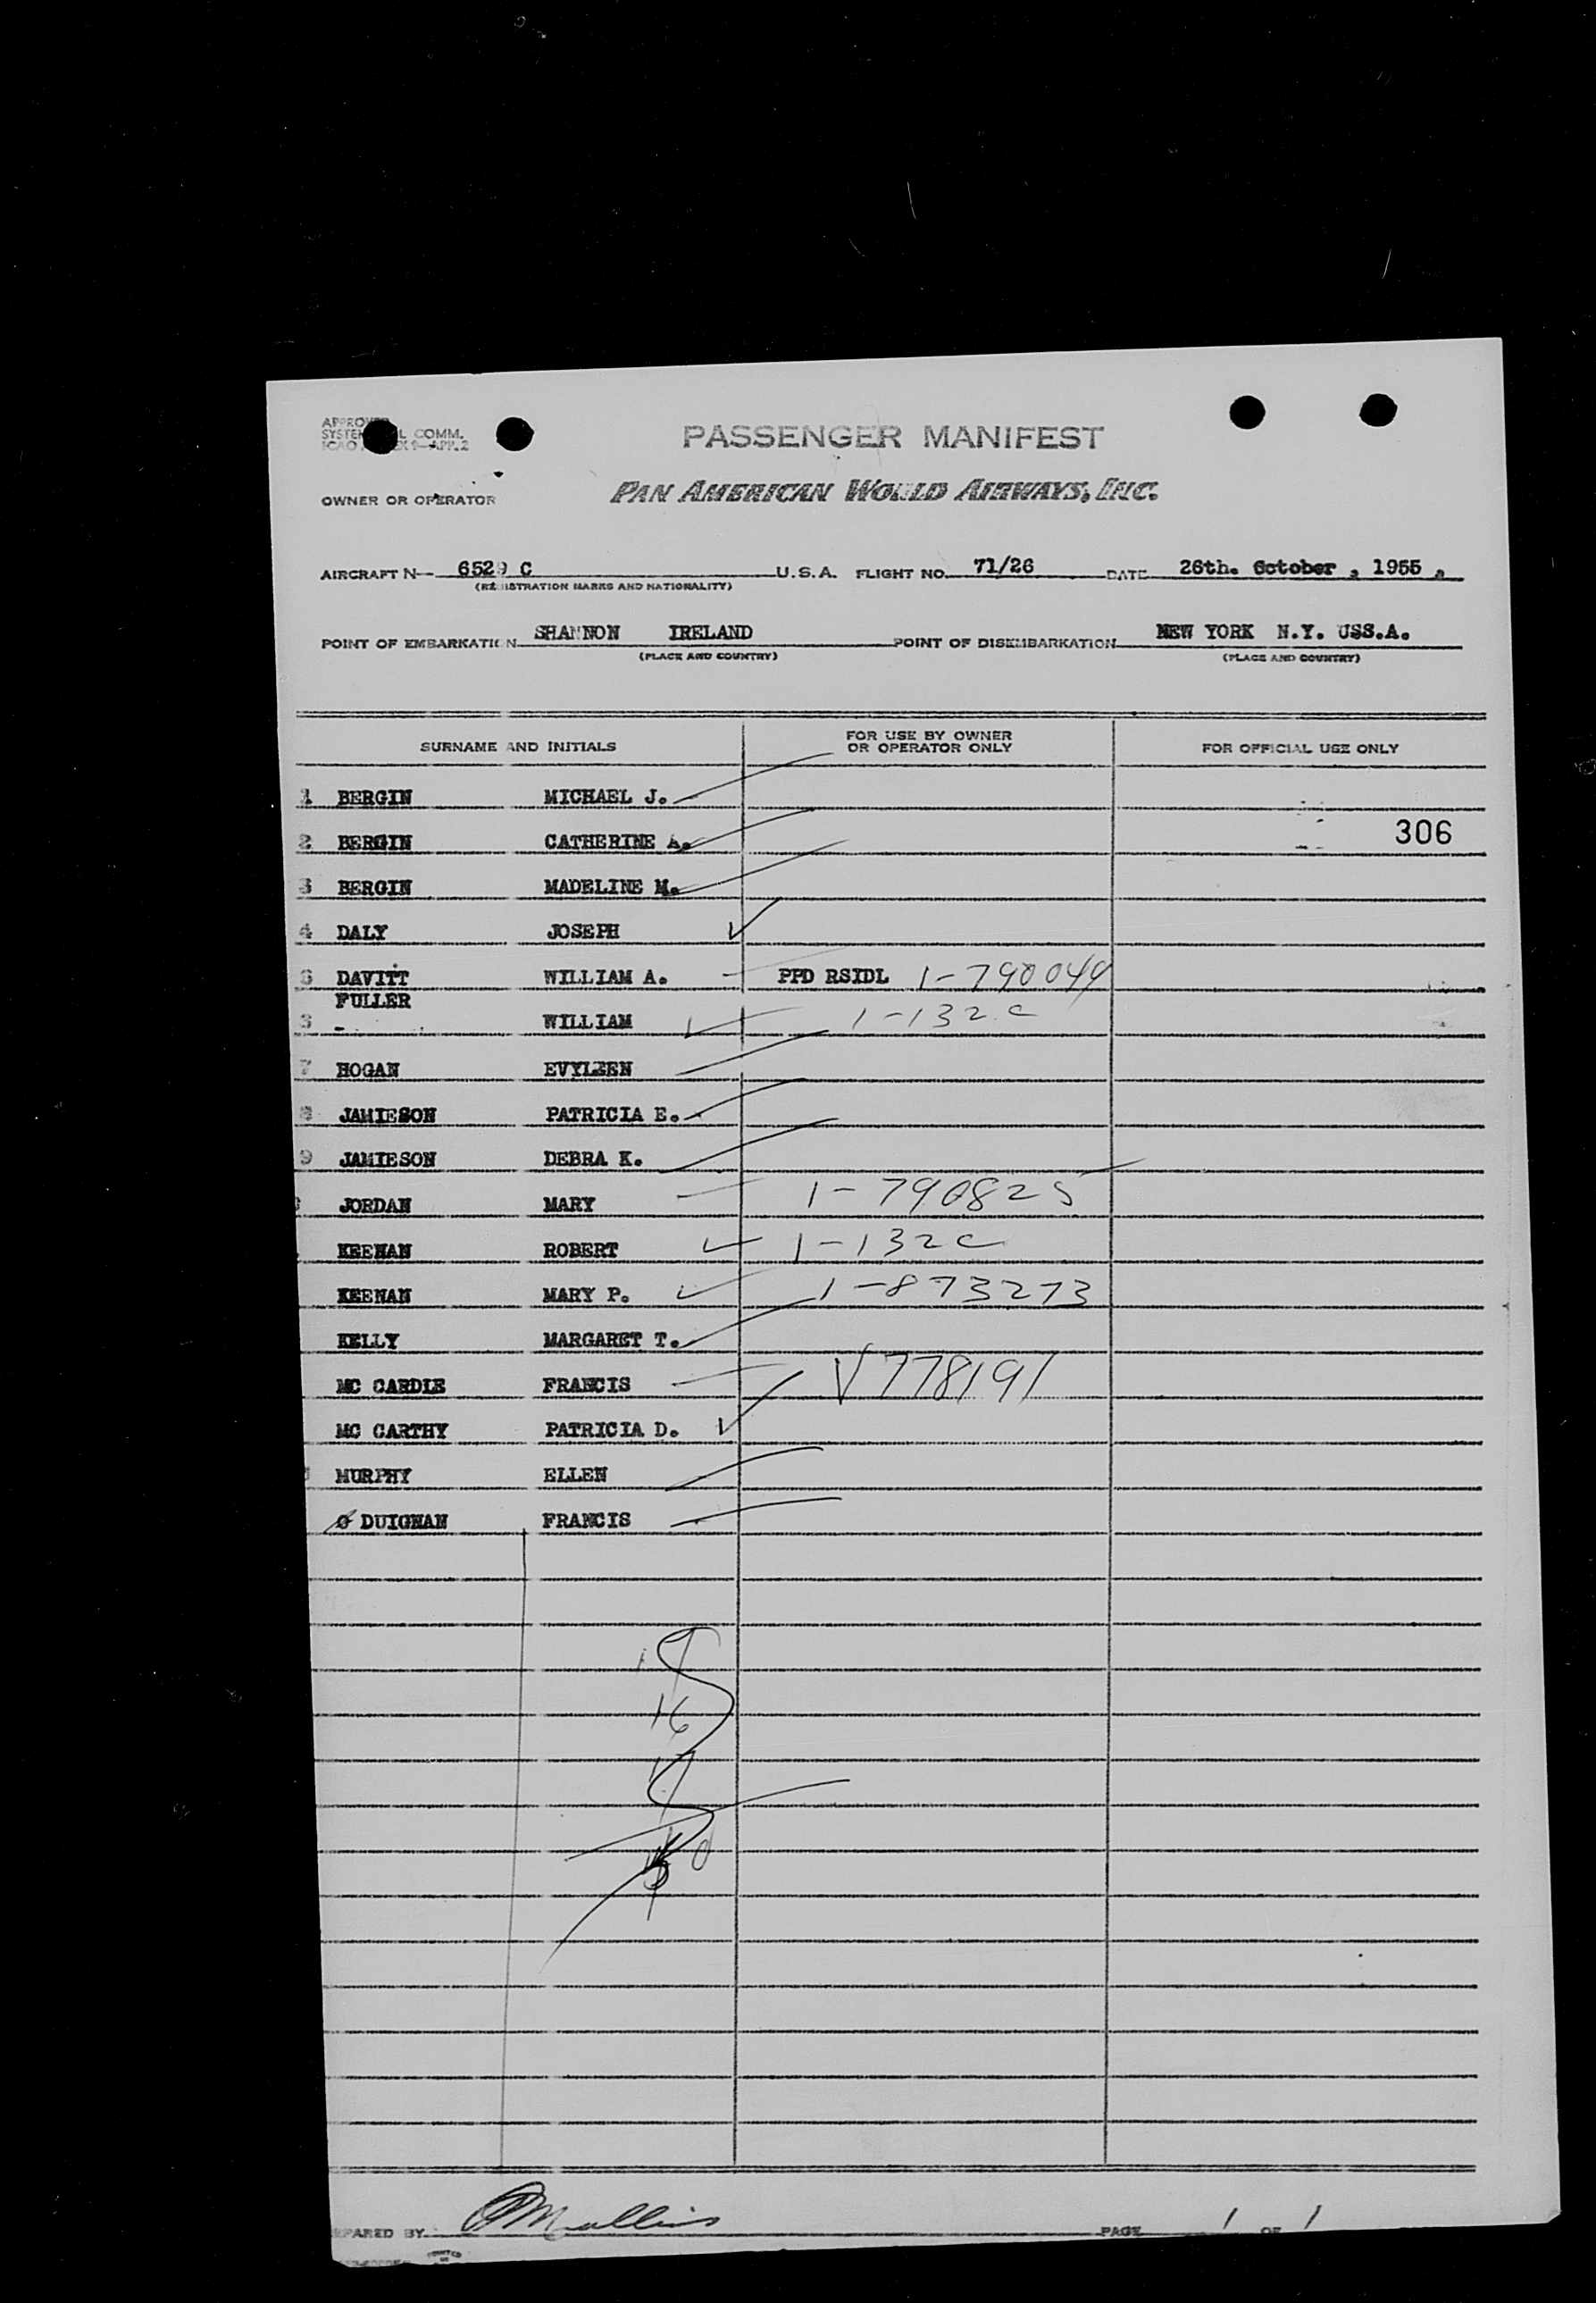 PASSENGER MANIFEST
OWNER OR OPERATOR PAN AMERICAN WORLD AIRWAYS, INC.
AIRCRAFT N- 6529 C U.S.A. FLIGHT NO. 71/26 DATE 26th. October , 1955 .
(REGISTRATION MARKS AND NATIONALITY)
POINT OF EMBARKATION SHANNON IRELAND POINT OF DISEMBARKATION NEW YORK N.Y. USS.A.
(PLACE AND COUNTRY) (PLACE AND COUNTRY)
SURNAME AND INITIALS FOR USE BY OWNER OR OPERATOR ONLY FOR OFFICIAL USE ONLY
1 BERGIN MICHAEL J.
2 BERGIN CATHERINE A. 306
3 BERGIN MADELINE M.
4 DALY JOSEPH
DAVITT WILLIAM A. PPD RSIDL 1-790044
FULLER
WILLIAM 1-132 C
7 HOGAN EVYLEEN
JAMIESON PATRICIA E.
9 JAMIESON DEBRA K.
JORDAN MARY 1-790825
KEENAN ROBERT 1-132C
KEENAN MARY P. 1-873273
KELLY MARGARET T.
MC CARDLE FRANCIS V778191
MC CARTHY PATRICIA D.
MURPHY ELLEN
O DUIGNAN FRANCIS
16
PARED BY Mullins PAGE 1 OF 1